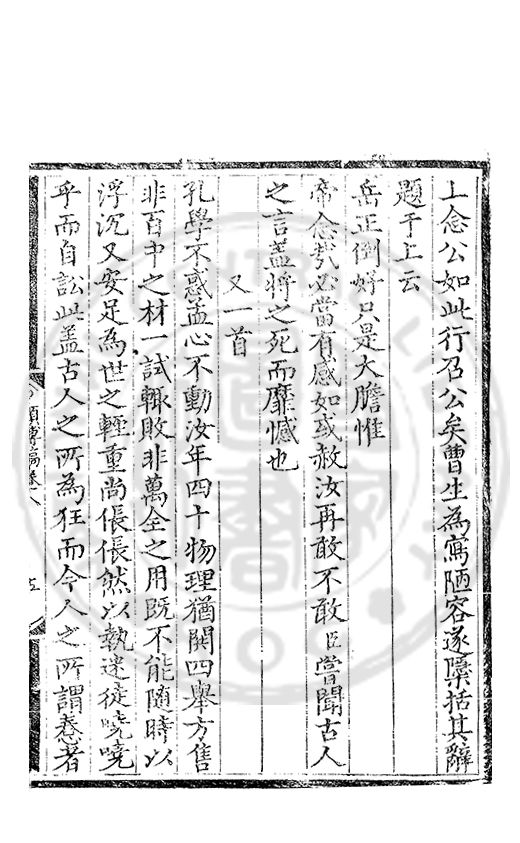 上念公如此行召公矣曹生為寫陋容遂檃括其辭
題于上云
岳正倒好只是大膽惟
帝念哉必當有感如或赦汝再敢不敢臣嘗聞古人
之言蓋將之死而靡憾也
又一首
孔學不惑孟心不動汝年四十物理猶闕四舉方售
非百中之材一試輒敗非萬全之用既不能隨時以
浮沉又安足為世之輕重尚倀倀然以執迷徒嘵嘵
乎而自訟此蓋古人之所為狂而今人之所謂惷者
類博稿卷八
五